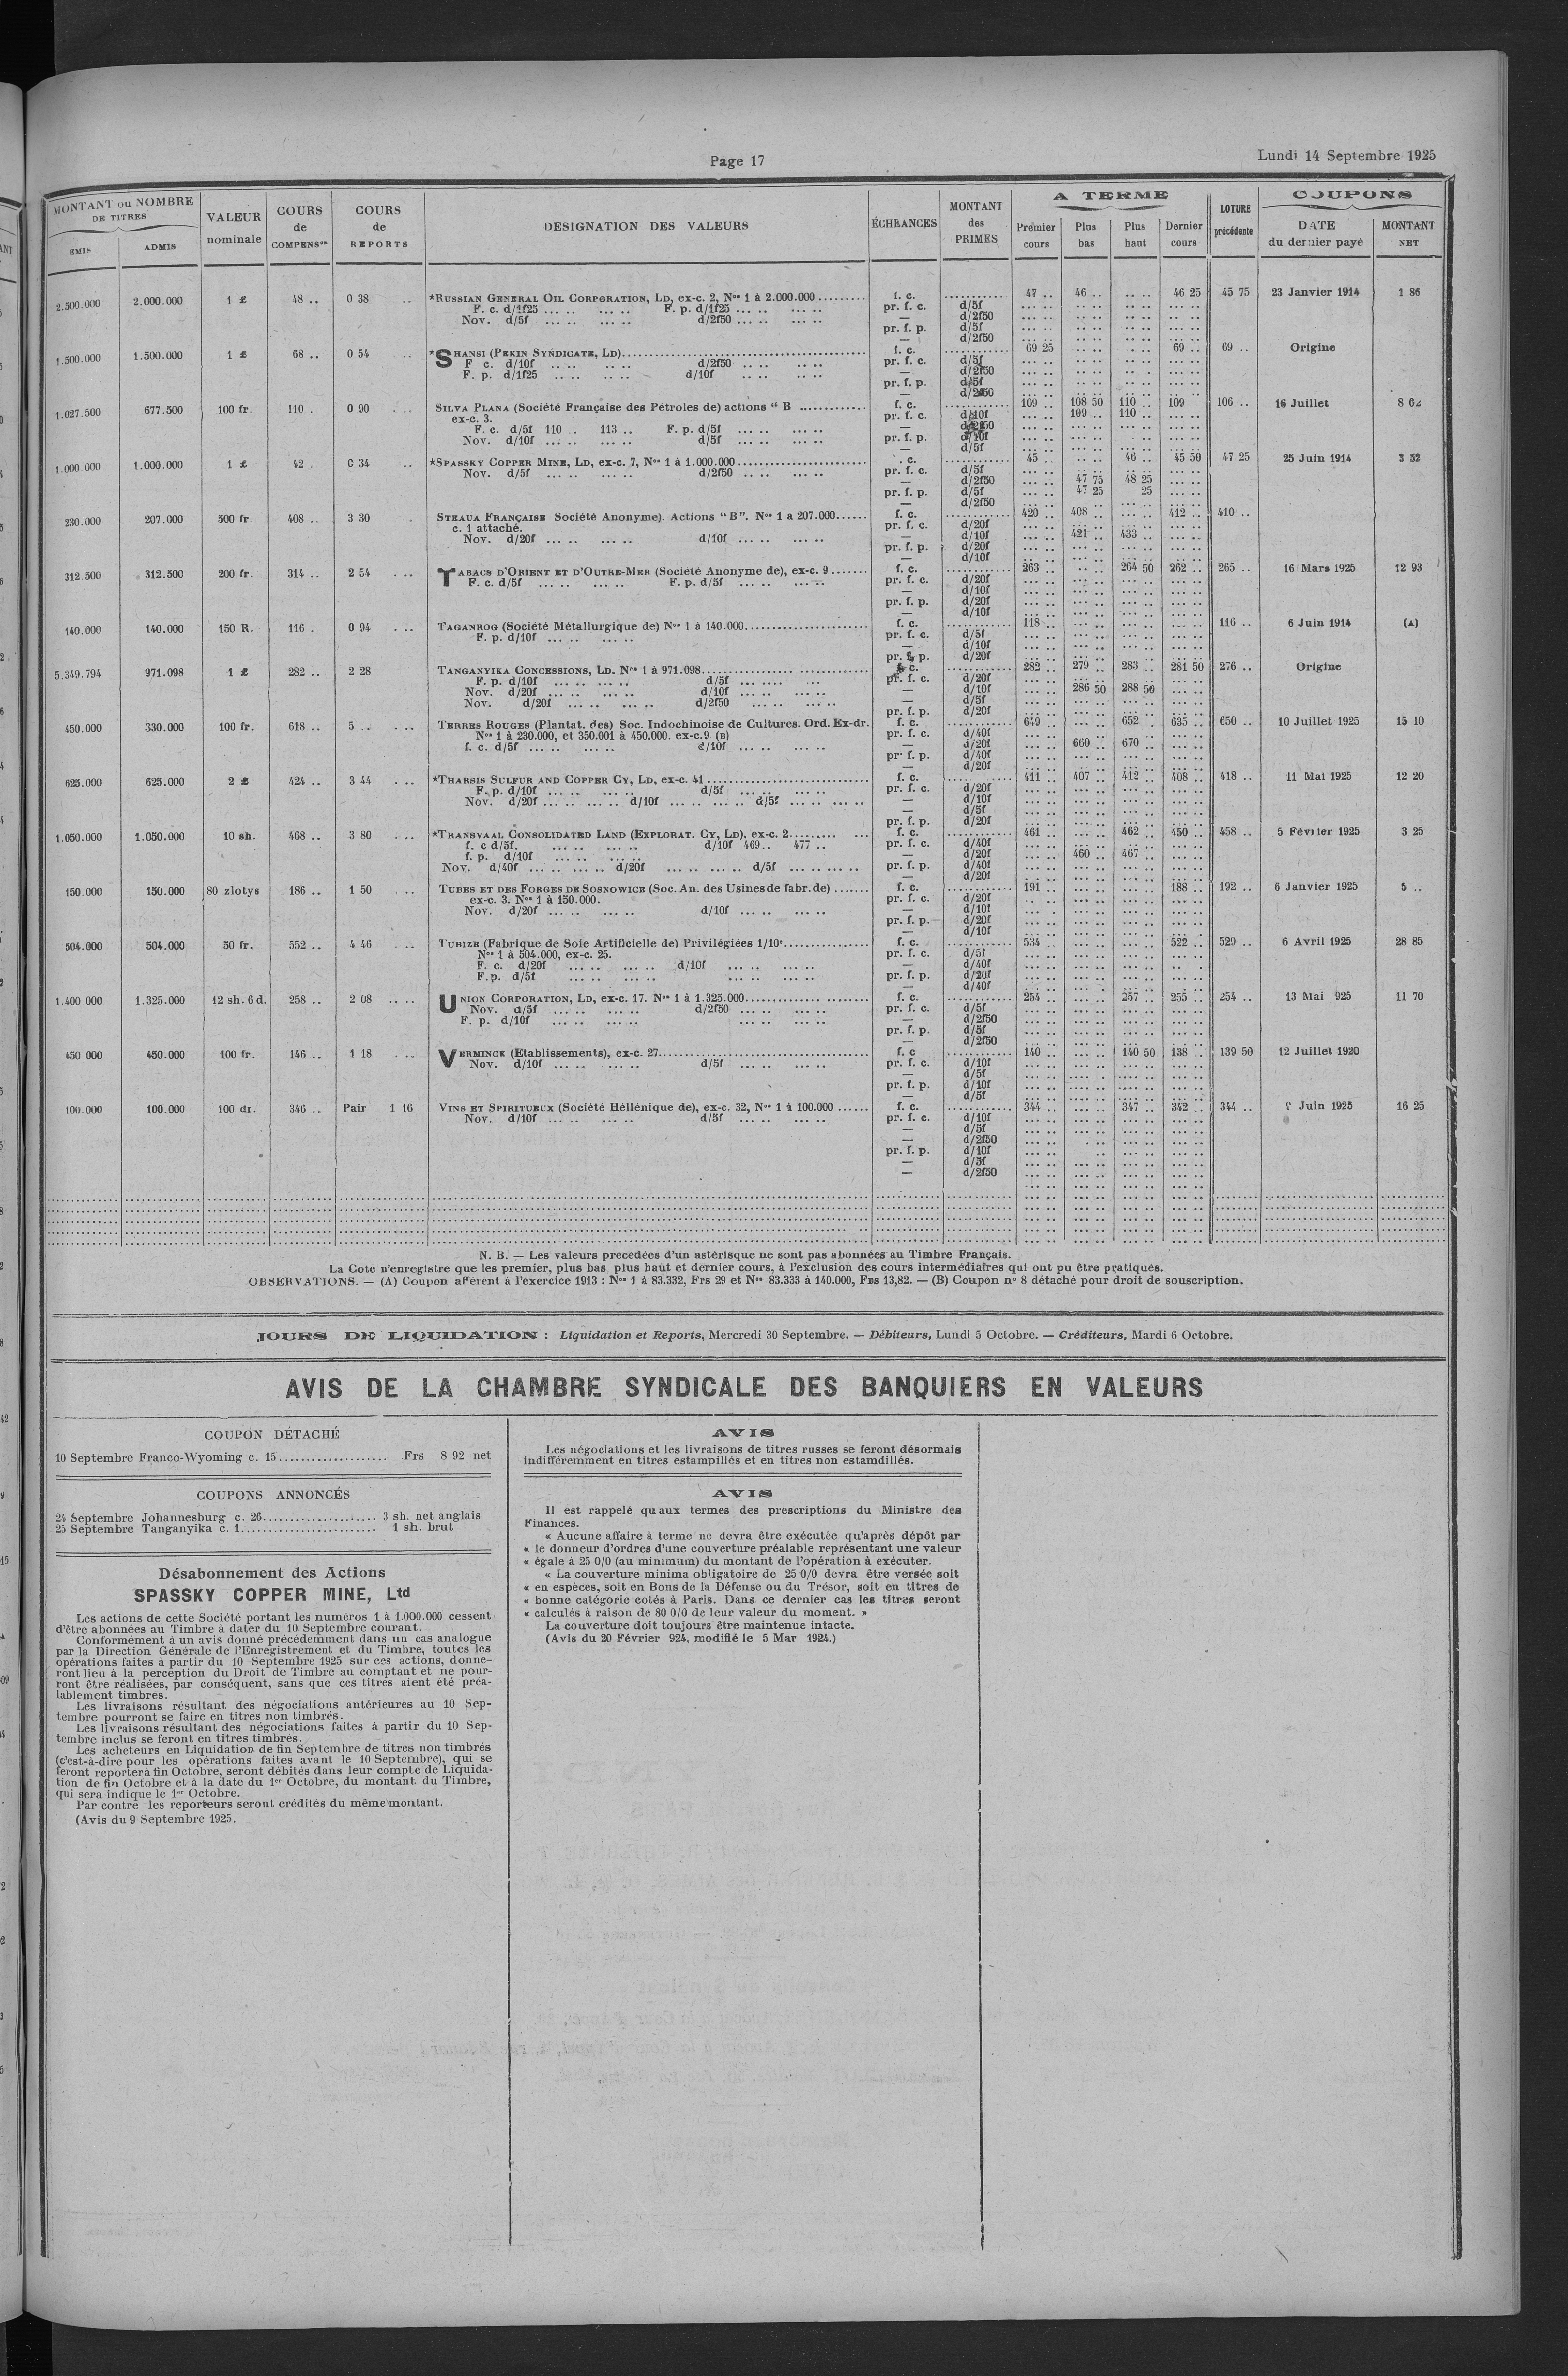 Page 17
Lundi 14 Septembre 1925
MONTANT ou NOMBRE DE TITRES
EMIS
ADMIS
VALEUR nominale
COURS de COMPENSon
COURS de REPORTS
DESIGNATION DES VALEURS
ÉCHEANCES
MONTANT des PRIMES
A TERME
Premier cours
Plus bas
Plus haut
Dernier cours
précédente
COUPONS
DATE du dernier payé
MONTANT NET
2.500.000 2.000.000 1 £ 48 .. 0 38 .. *RUSSIAN GENERAL OIL CORPORATION, LD, ex-c. 2, Nos 1 à 2.000.000 f. c. 47 .. 46 .. 46 25 45 75 23 Janvier 1914 1 86
F. c. d/1f25 ... .. ... .. F. p. d/1f25 ... .. ... .. pr. f. c. d/5f
Nov. d/5f ... .. ... .. d/2f50 ... .. ... .. — d/2f50
pr. f. p. d/5f
— d/2f50
1.500.000 1.500.000 1 £ 68 .. 0 54 .. *SHANSI (PEKIN SYNDICATE, LD) f. c. 69 25 69 .. 69 .. Origine
F c. d/10f ... .. ... .. d/2f50 ... .. ... .. pr. f. c. d/5f
F. p. d/1f25 ... .. ... .. d/10f ... .. ... .. — d/2f50
pr. f. p. d/5f
— d/2f50
1.027.500 677.500 100 fr. 110 . 0 90 . .. SILVA PLANA (Société Française des Pétroles de) actions " B f. c. 109 .. 108 50 110 .. 109 106 .. 16 Juillet
ex-c. 3. pr. f. c. d/10f 109 .. 110 ..
F. c. d/5f 110 .. 113 .. F. p. d/5f ... .. ... .. —
Nov. d/10f ... .. ... .. d/5f ... .. ... .. pr. f. p.
— d/5f
1.000.000 1.000.000 1 £ 42 . 0 34 .. *SPASSKY COPPER MINE, LD, ex-c. 7, Nos 1 à 1.000.000 . c. 45 46 .. 45 50 47 25 25 Juin 1914 3 52
Nov. d/5f ... .. ... .. d/2f50 ... .. ... .. pr. f. c. d/5f
— d/2f50 47 75 48 25
pr. f. p. d/5f 47 25 25
— d/2f50
230.000 207.000 500 fr 408 .. 3 30 STEAUA FRANÇAISE Société Anonyme). Actions "B". Nos 1 a 207.000 f. c. 420 .. 408 .. 412 .. 410 ..
c. 1 attaché. pr. f. c. d/20f
Nov. d/20f ... .. ... .. d/10f ... .. ... .. — d/10f 421 .. 433 ..
pr. f. p. d/20f
— d/10f
312.500 312.500 200 fr. 314 .. 2 54 . .. TABACS D'ORIENT ET D'OUTRE-MER (Société Anonyme de), ex-c. 9 f. c. 263 .. 264 50 262 .. 265 .. 16 Mars 1925 12 93
F. c. d/5f ... .. ... .. F. p. d/5f ... .. ... .. pr. f. c. d/20f
— d/10f
pr. f. p. d/20f
— d/10f
140.000 140.000 150 R. 116 . 0 94 . .. TAGANROG (Société Métallurgique de) Nos 1 à 140.000 f. c. 118 116 .. 6 Juin 1914 (A)
F. p. d/10f ... .. ... .. pr. f. c. d/5f
— d/10f
pr. f. p. d/20f
5.349.794 971.098 1 £ 282 .. 2 28 TANGANYIKA CONCESSIONS, LD. Nos 1 à 971.098 c. 282 .. 279 .. 283 .. 281 50 276 .. Origine
F. p. d/10f ... .. ... .. d/5f ... .... ... pr. f. c. d/20f
Nov. d/20f ... .. ... .. d/10f ... .. ... .. — d/10f 286 50 288 50
Nov. d/20f ... .. ... .. d/2f50 ... .. ... .. — d/5f
pr. f. p. d/20f
450.000 330.000 100 fr. 618 .. 5 .. . .. TERRES ROUGES (Plantat. des) Soc. Indochinoise de Cultures. Ord. Ex-dr. f. c. 649 .. 652 635 .. 650 .. 10 Juillet 1925 15 10
Nos 1 à 230.000, et 350.001 à 450.000. ex-c.9 (B) pr. f. c. d/40f
f. c. d/5f ... .. ... .. d/10f ... .. ... .. — d/20f 660 .. 670 ..
pr. f. p. d/40f
— d/20f
625.000 625.000 2 £ 424 .. 3 44 . .. *THARSIS SULFUR AND COPPER CY, LD, ex-c. 41 f. c. 411 .. 407 .. 412 .. 408 .. 418 .. 11 Mai 1925 12 20
F. p. d/10f ... .. ... .. d/5f ... .. ... .. pr. f. c. d/20f
Nov. d/20f ... .. ... .. d/10f ... .. ... .. d/5f ... .. ... .. — d/10f
— d/5f
pr. f. p. d/20f
1.050.000 1.050.000 10 sh. 468 .. 3 80 . .. *TRANSVAAL CONSOLIDATED LAND (EXPLORAT. CY, LD), ex-c. 2 f. c. 461 .. 462 .. 450 .. 458 .. 5 Février 1925 3 25
f. c d/5f. ... .. ... .. d/10f 469 .. 477 .. pr. f. c. d/40f
f. p. d/10f ... .. ... .. — d/20f 460 .. 467 ..
Nov. d/40f ... .. ... .. d/20f ... .. ... .. d/5f ... .. ... .. pr. f. p. d/40f
— d/20f
150.000 150.000 80 zlotys 186 .. 1 50 .. TUBES ET DES FORGES DE SOSNOWICE (Soc. An. des Usines de fabr. de) f. c. 191 .. 188 .. 192 .. 6 Janvier 1925 5 ..
ex-c. 3. Nos 1 à 150.000. pr. f. c. d/20f
Nov. d/20f ... .. ... .. d/10f ... .. ... .. — d/10f
pr. f. p. d/20f
— d/10f
504.000 504.000 50 fr. 552 .. 4 46 . .. TUBIZE (Fabrique de Soie Artificielle de) Privilégiées 1/10e f. c. 534 522 .. 529 .. 6 Avril 1925 28 85
Nos 1 à 504.000, ex-c. 25. pr. f. c. d/5f
F. c. d/20f ... .. ... .. d/10f ... .. ... .. — d/40f
F. p. d/5f ... .. ... .. ... .. ... .. pr. f. p. d/20f
— d/40f
1.400 000 1.325.000 12 sh. 6 d. 258 .. 2 08 .. .. UNION CORPORATION, LD, ex-c. 17. Nos 1 à 1.325.000 f. c. 254 .. 257 .. 255 .. 254 .. 13 Mai 925 11 70
Nov. d/5f ... .. ... .. d/2f50 ... .. ... .. pr. f. c. d/5f
F. p. d/10f ... .. ... .. ... .. ... .. — d/2f50
pr. f. p. d/5f
— d/2f50
450 000 450.000 100 fr. 146 .. 1 18 . .. VERMINCK (Etablissements), ex-c. 27 f. c 140 .. 140 50 138 .. 139 50 12 Juillet 1920
Nov. d/10f ... .. ... .. d/5f ... .. ... .. pr. f. c. d/10f
— d/5f
pr. f. p. d/10f
— d/5f
100.000 100.000 100 dr. 346 .. Pair 1 16 VINS ET SPIRITUEUX (Société Héllénique de), ex-c. 32, Nos 1 à 100.000 f. c. 344 .. 347 .. 342 .. 344 .. Juin 1925 16 25
Nov. d/10f ... .. ... .. d/5f ... .. ... .. pr. f. c. d/10f
— d/5f
— d/2f50
pr. f. p. d/10f
— d/5f
— d/2f50
N. B. — Les valeurs precedées d'un astérisque ne sont pas abonnées au Timbre Français.
La Cote n'enregistre que les premier, plus bas plus haut et dernier cours, à l'exclusion des cours intermédiaires qui ont pu être pratiqués.
OBSERVATIONS. — (A) Coupon afférent à l'exercice 1913 : Nos 1 à 83.332, Frs 29 et Nos 83.333 à 140.000, Frs 13,82. — (B) Coupon n° 8 détaché pour droit de souscription.
JOURS DE LIQUIDATION : Liquidation et Reports, Mercredi 30 Septembre. — Débiteurs, Lundi 5 Octobre. — Créditeurs, Mardi 6 Octobre.
AVIS DE LA CHAMBRE SYNDICALE DES BANQUIERS EN VALEURS
COUPON DÉTACHÉ
10 Septembre Franco-Wyoming c. 15 Frs 8 92 net
COUPONS ANNONCÉS
24 Septembre Johannesburg c. 26 3 sh. net anglais
25 Septembre Tanganyika c. 1 1 sh. brut
Désabonnement des Actions
SPASSKY COPPER MINE, Ltd
Les actions de cette Société portant les numéros 1 à 1.000.000 cessent
d'être abonnées au Timbre à dater du 10 Septembre courant.
Conformément à un avis donné précédemment dans un cas analogue
par la Direction Générale de l'Enregistrement et du Timbre, toutes les
opérations faites à partir du 10 Septembre 1925 sur ces actions, donne-
ront lieu à la perception du Droit de Timbre au comptant et ne pour-
ront être réalisées, par conséquent, sans que ces titres aient été préa-
lablement timbrés.
Les livraisons résultant des négociations antérieures au 10 Sep-
tembre pourront se faire en titres non timbrés.
Les livraisons résultant des négociations faites à partir du 10 Sep-
tembre inclus se feront en titres timbrés.
Les acheteurs en Liquidation de fin Septembre de titres non timbrés
(c'est-à-dire pour les opérations faites avant le 10 Septembre), qui se
feront reporter à fin Octobre, seront débités dans leur compte de Liquida-
tion de fin Octobre et à la date du 1er Octobre, du montant du Timbre,
qui sera indique le 1er Octobre.
Par contre les reporteurs seront crédités du même montant.
(Avis du 9 Septembre 1925.
AVIS
Les négociations et les livraisons de titres russes se feront désormais
indifféremment en titres estampillés et en titres non estamdillés.
AVIS
Il est rappelé qu aux termes des prescriptions du Ministre des
Finances.
« Aucune affaire à terme ne devra être exécutée qu'après dépôt par
« le donneur d'ordres d'une couverture préalable représentant une valeur
« égale à 25 0/0 (au minimum) du montant de l'opération à exécuter.
« La couverture minima obligatoire de 25 0/0 devra être versée soit
« en espèces, soit en Bons de la Défense ou du Trésor, soit en titres de
« bonne catégorie cotés à Paris. Dans ce dernier cas les titres seront
« calculés à raison de 80 0/0 de leur valeur du moment. »
La couverture doit toujours être maintenue intacte.
(Avis du 20 Février 924, modifié le 5 Mar 1924.)